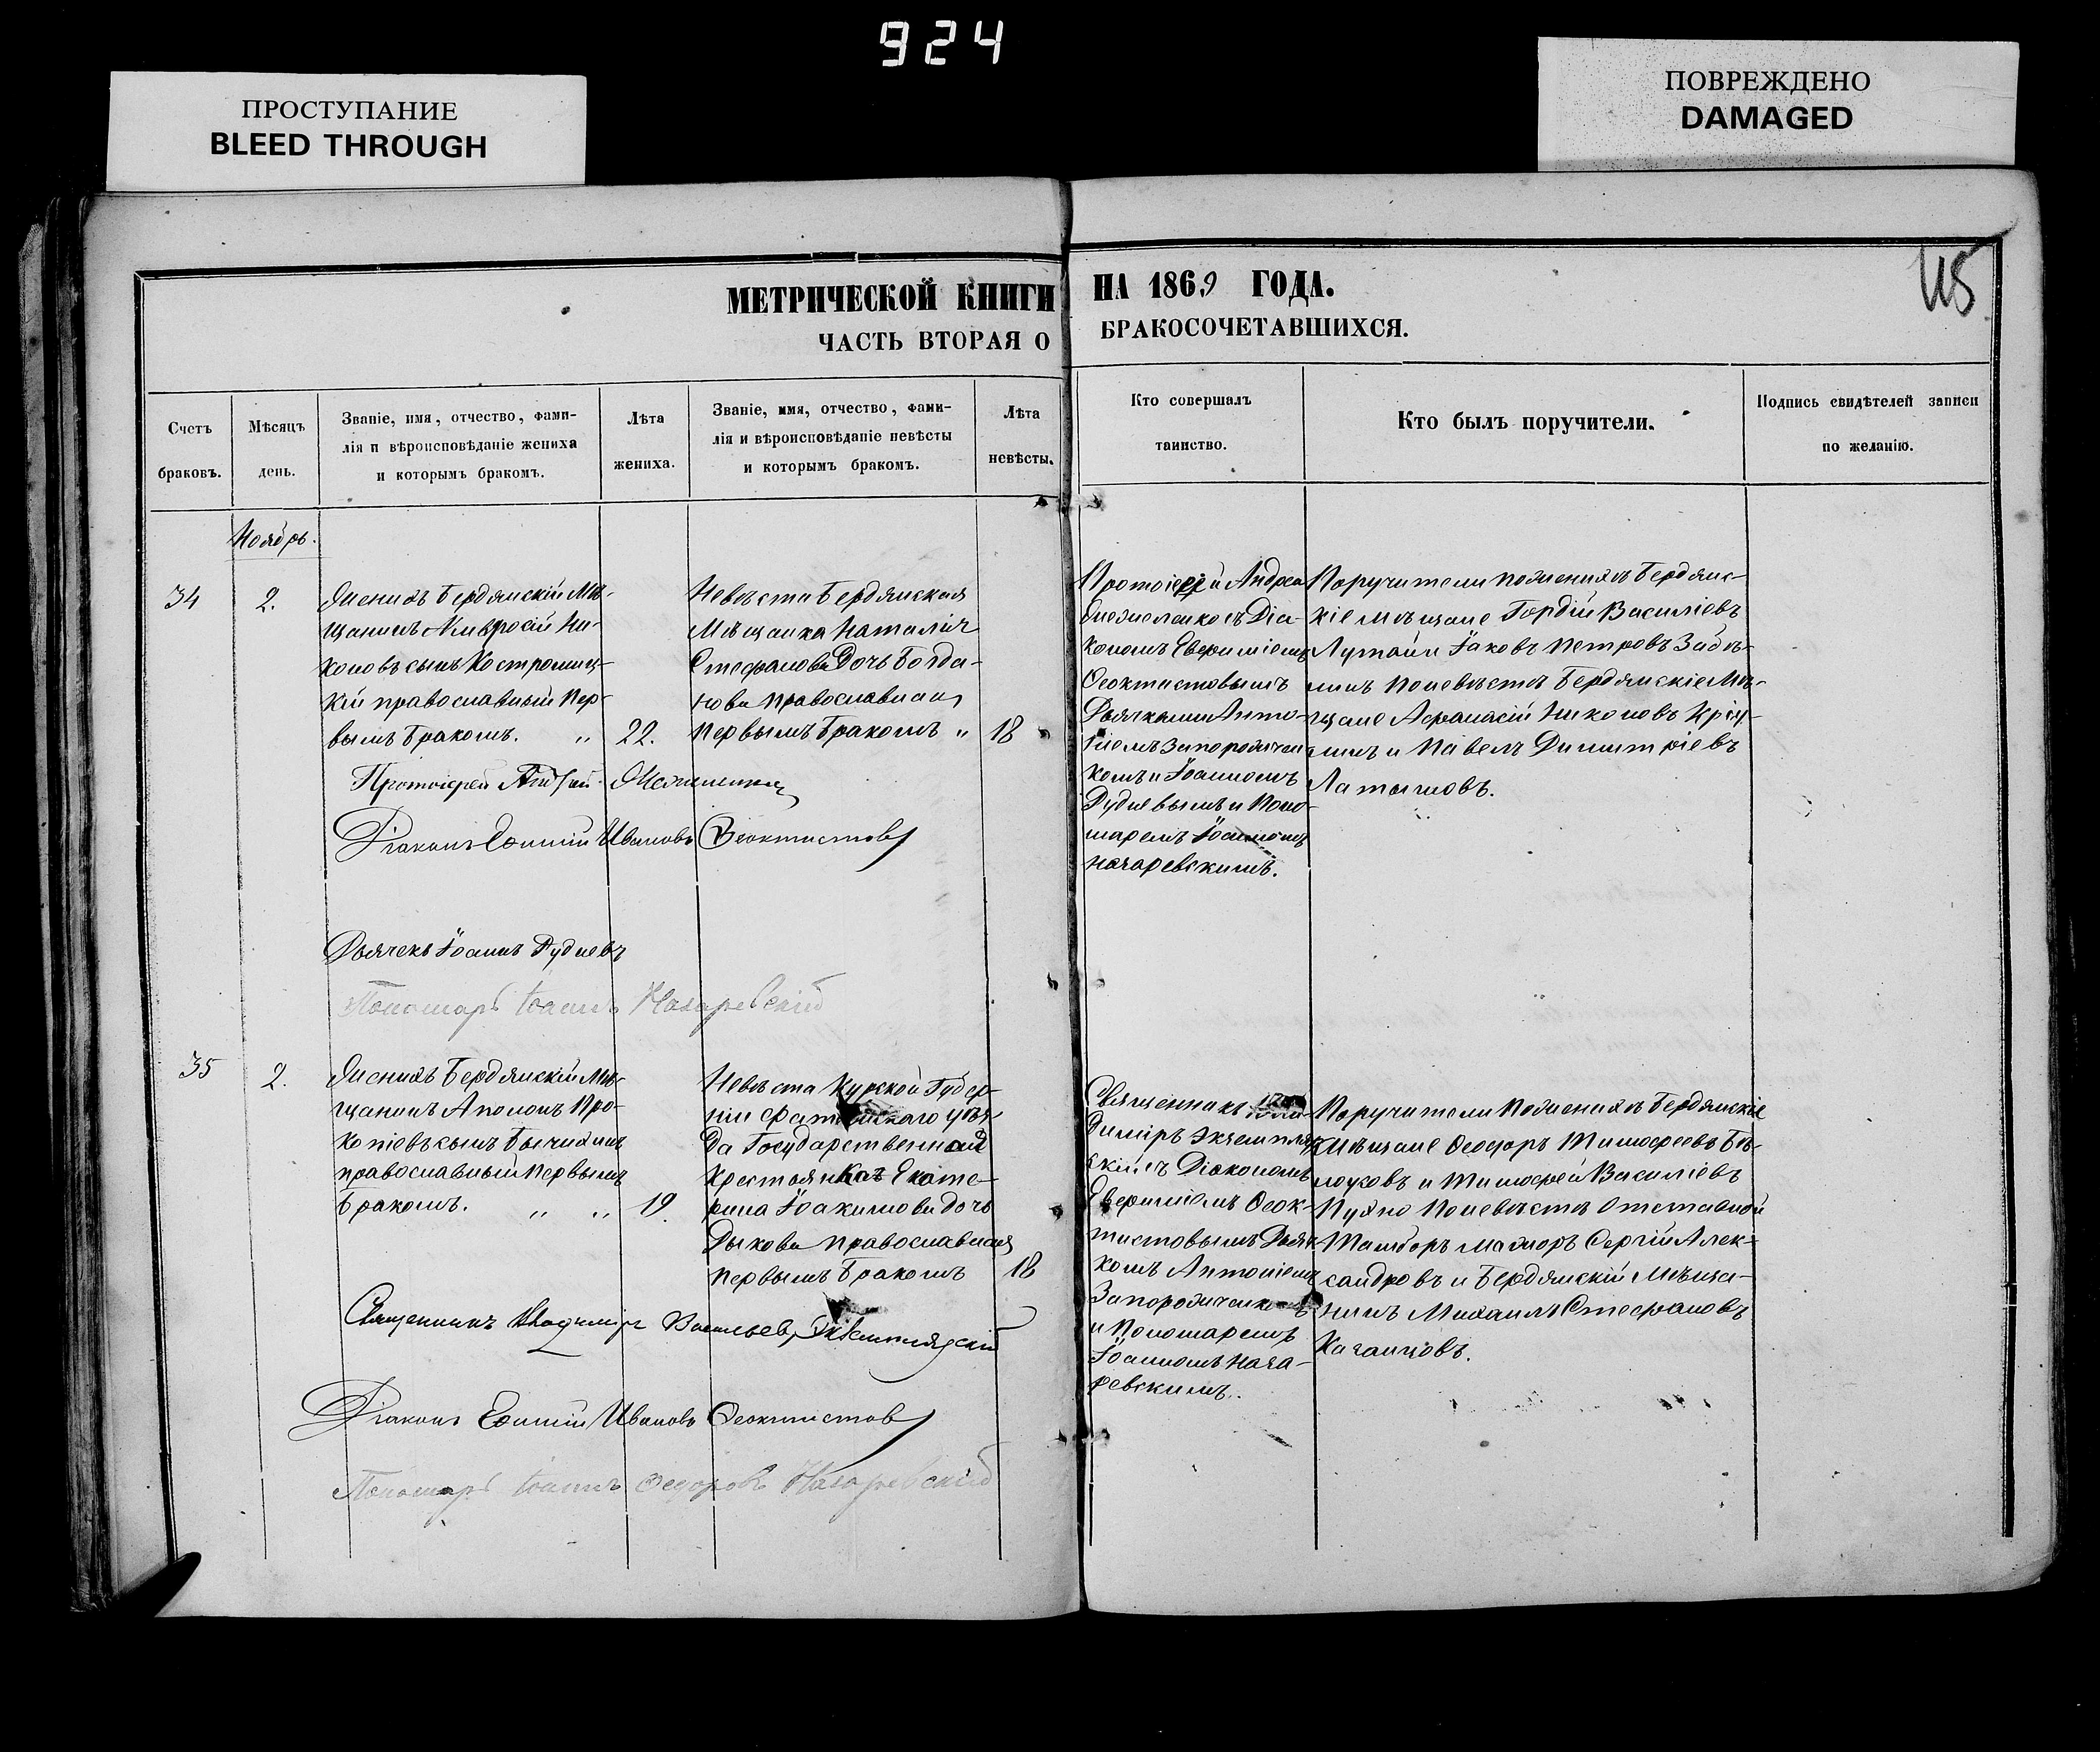 924
ПРОСТУПАНИЕ
BLEED THROUGH
ПОВРЕЖДЕНО
DAMAGED
115
МЕТРИЧЕСКОЙ КНИГИ НА 1869 ГОДА.
ЧАСТЬ ВТОРАЯ О БРАКОСОЧЕТАВШИХСЯ.
Счетъ
браковъ.
Мѣсяцъ
день.
Званіе, имя, отчество, фами-
лія и вѣроисповѣданіе жениха
и которымъ бракомъ.
Лѣта
жениха.
Званіе, имя, отчество, фами-
лія и вѣроисповѣданіе невѣсты
и которымъ бракомъ.
Лѣта
невѣсты.
Кто совершалъ
таинство.
Кто былъ поручители.
Подпись свидѣтелей записи
по желанію.
Ноябрь.
34
2.
Женихъ Бердянскій Мѣ-
щанинъ Амвросій Ни-
коновъ сынъ Костромиц-
кій православный пер-
вымъ бракомъ. "
22.
Невѣста Бердянская
Мѣщанка Наталія
Стефанова Дочь Богда-
нова православная
первымъ бракомъ "
18
Протоіерей Андрей
Діа-
кономъ Евфиміемъ
Феоктистовымъ
Дьячками Анто-
ніемъ Запорожчен
комъ и Іоанномъ
Рудневымъ и Поно-
маремъ Іоанномъ
Назаревскимъ.
Поручители по женихѣ Бердянс-
кіе мѣщане Гордій Василіевъ
Лутай и Іаковъ Петровъ Забѣ-
линъ по невѣстѣ Бердянскіе Мѣ-
щане Афанасій Никоновъ
и Павелъ Димитріевъ
Латышовъ.
Протоіерей Андрей
Діаконъ Евфимій Ивановъ Феоктистовъ
Дьячекъ Іоаннъ Рудневъ
Пономарь Іоаннъ Назаревскій
35
2.
Женихъ Бердянскій Мѣ-
щанинъ Аполонъ Про-
копіевъ сынъ Бычихинъ
православный первымъ
бракомъ. " "
19.
Невѣста Курской Губер-
ніи уѣз-
да Государственная
Крестьянка Екате-
рина Іоакимова дочь
Дыкова православная
первымъ бракомъ
18
Священникъ Вла-
диміръ Экземпляр-
скій съ Діакономъ
Евфиміемъ Феок-
тистовымъ Дьяч-
комъ Антоніемъ
Запорожченкомъ
и Пономаремъ
Іоанномъ Наза-
ревскимъ.
Поручители по женихѣ Бердянскіе
Мѣщане Феодоръ Тимофеевъ Бѣ-
лоусовъ и Тимофей Василіевъ
Пухно по невѣстѣ Отставной
Тамборъ мажоръ Сергій Алек-
сандровъ и Бердянскій Мѣща-
нинъ Михаилъ Стефановъ
Казанцовъ.
Священникъ Владиміръ Васильевъ Экземплярскій
Діаконъ Евфимій Ивановъ Феоктистовъ
Пономарь Іоаннъ Федоровъ Назаревскій